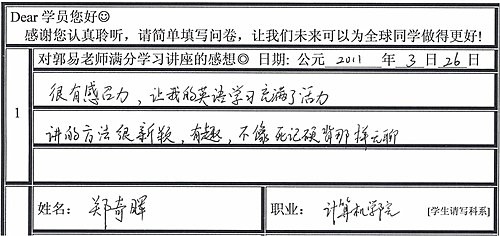 Dear 学员您好☺
感谢您认真聆听，请简单填写问卷，让我们未来可以为全球同学做得更好!
对郭易老师满分学习讲座的感想☺ 日期: 公元 2011 年 3 日 26 日
1
很有感召力，让我的英语学习充满了活力
讲的方法很新颖，有趣，不像死记硬背那样无聊
姓名: 郑奇晖
职业: 计算机学院 [学生请写科系]